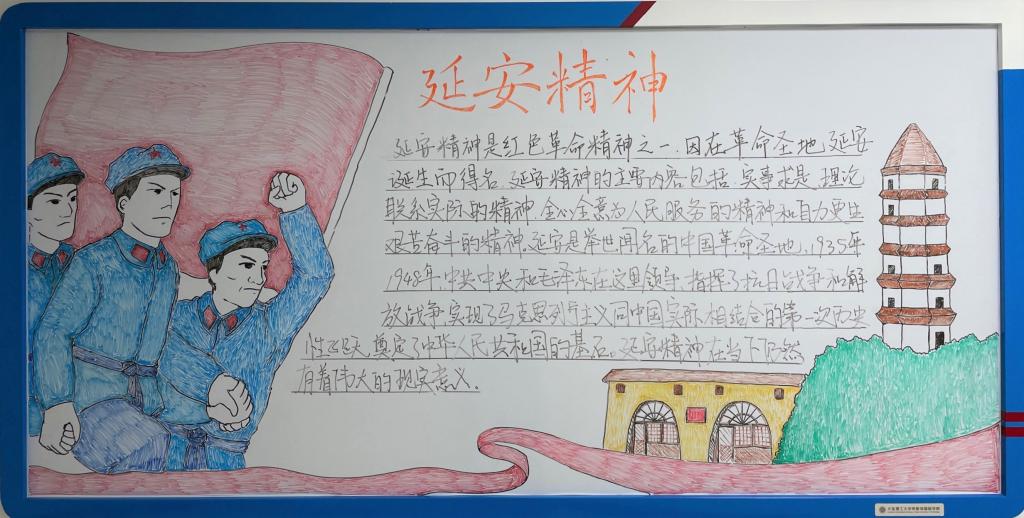 延安精神
延安精神是红色革命精神之一,因在革命圣地延安
诞生而得名。延安精神的主要内容包括:实事求是、理论
联系实际的精神、全心全意为人民服务的精神和自力更生
艰苦奋斗的精神。延安是举世闻名的中国革命圣地,1935年
1948年,中共中央和毛泽东在这里领导、指挥了抗日战争和解
放战争,实现了马克思列宁主义同中国实际相结合的第一次历史
性飞跃,奠定了中华人民共和国的基石。延安精神在当下仍然
有着伟大的现实意义。